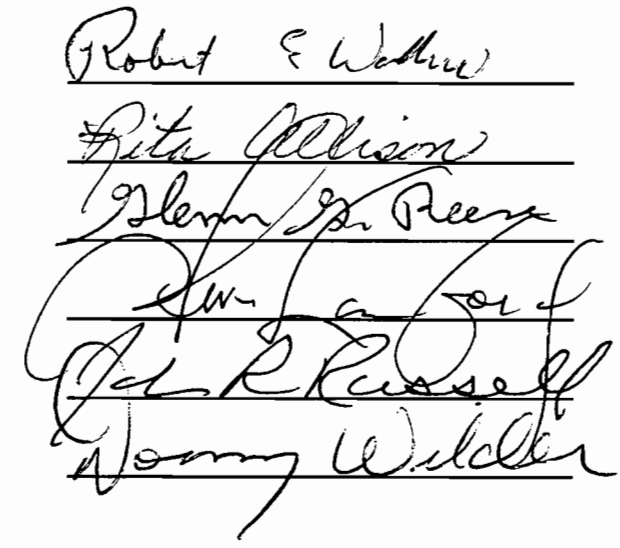 Robert E Walker
Rita Allison
Glenn G. Reese
John R Russell
Donny Wilder